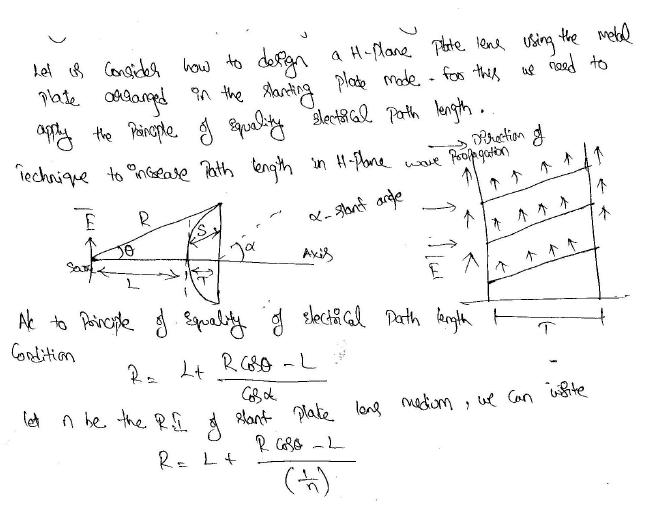 Let us consider how to design a H-Plane Plate lens using the metal
Plate arranged in the slanting plate mode. for this we need to
apply the Principle of Equality Electrical Path length.
→ Direction of
Technique to increase Path length in H-Plane wave Propagation
E R S α-slant angle
θ α Axis
L T
E
T
Ac to Principle of Equality of Electrical Path length
Condition
R = L + (R cosθ - L) / cosα
let n be the R.I of slant plate lens medium, we can write
R = L + (R cosθ - L) / (1/n)